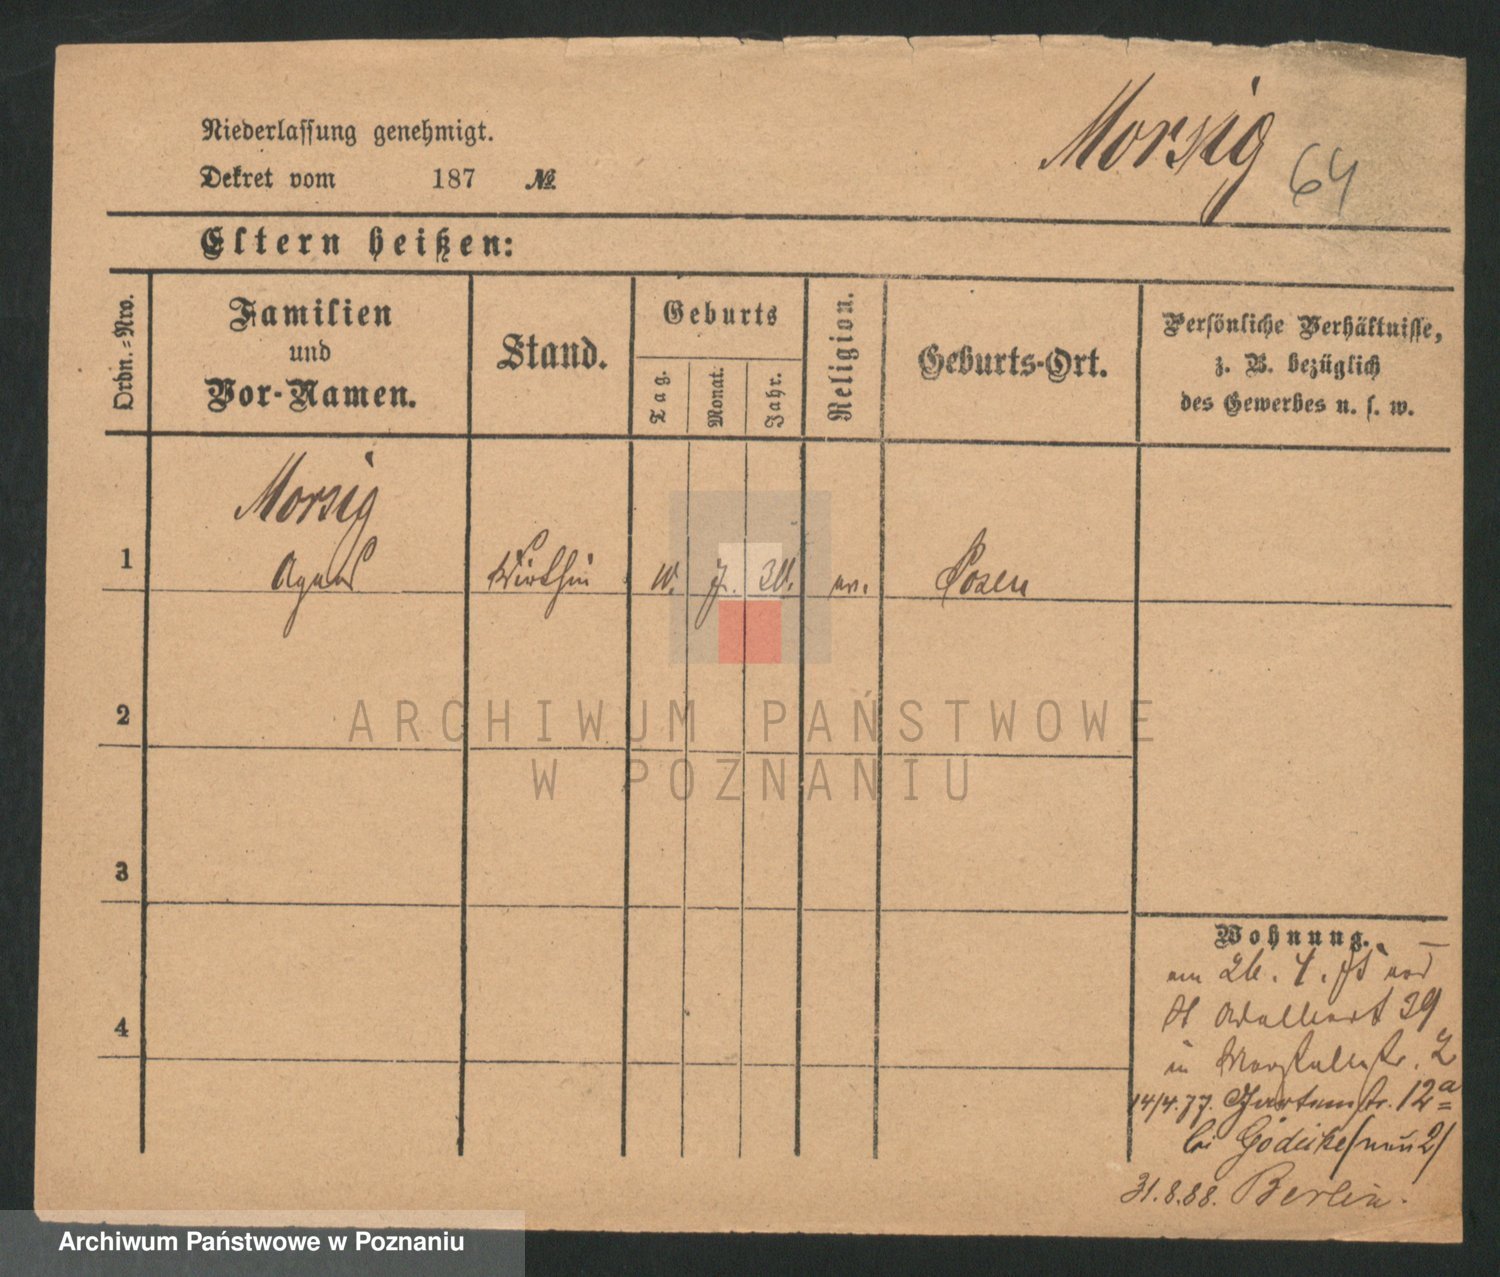 Morsig
64
Niederlassung genehmigt.
Dekret vom 187 №
Eltern heißen:
Ordn.=Nro.
Familien
und
Vor-Namen.
Stand.
Geburts
Tag.
Monat.
Jahr.
Religion.
Geburts-Ort.
Persönliche Verhältnisse,
z. B. bezüglich
des Gewerbes u. s. w.
Morsig
1 Agnes Wirthin ev. Posen
2
3
4
Wohnung.
am 26. 4. 75 von
St Adalbert 39
in Marstallstr. 2
14/4.77. Gartenstr. 12a
bei Gödicke (neu 2)
31.8.88. Berlin.
ARCHIWUM PAŃSTWOWE
W POZNANIU
Archiwum Państwowe w Poznaniu